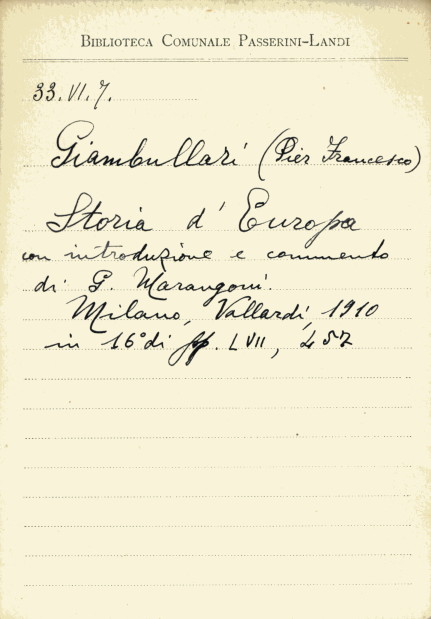 BIBLIOTECA COMUNALE PASSERINI-LANDI
33.VI.7.
Giambullari (Pier Francesco)
Storia d'Europa
con introduzione e commento
di G. Marangoni.
Milano, Vallardi, 1910
in 16° di pp. LVII, 457